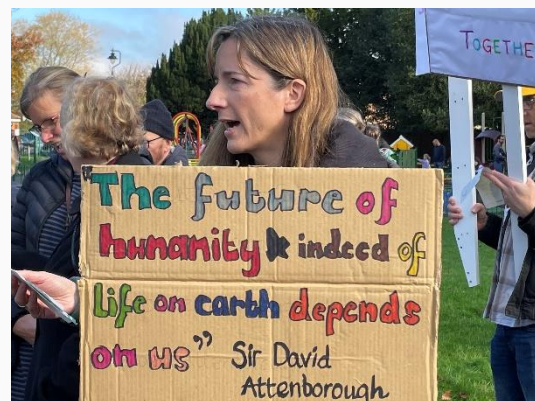 TOGETHE
"The future of
humanity & indeed of
life on earth depends
on us" Sir David
Attenborough